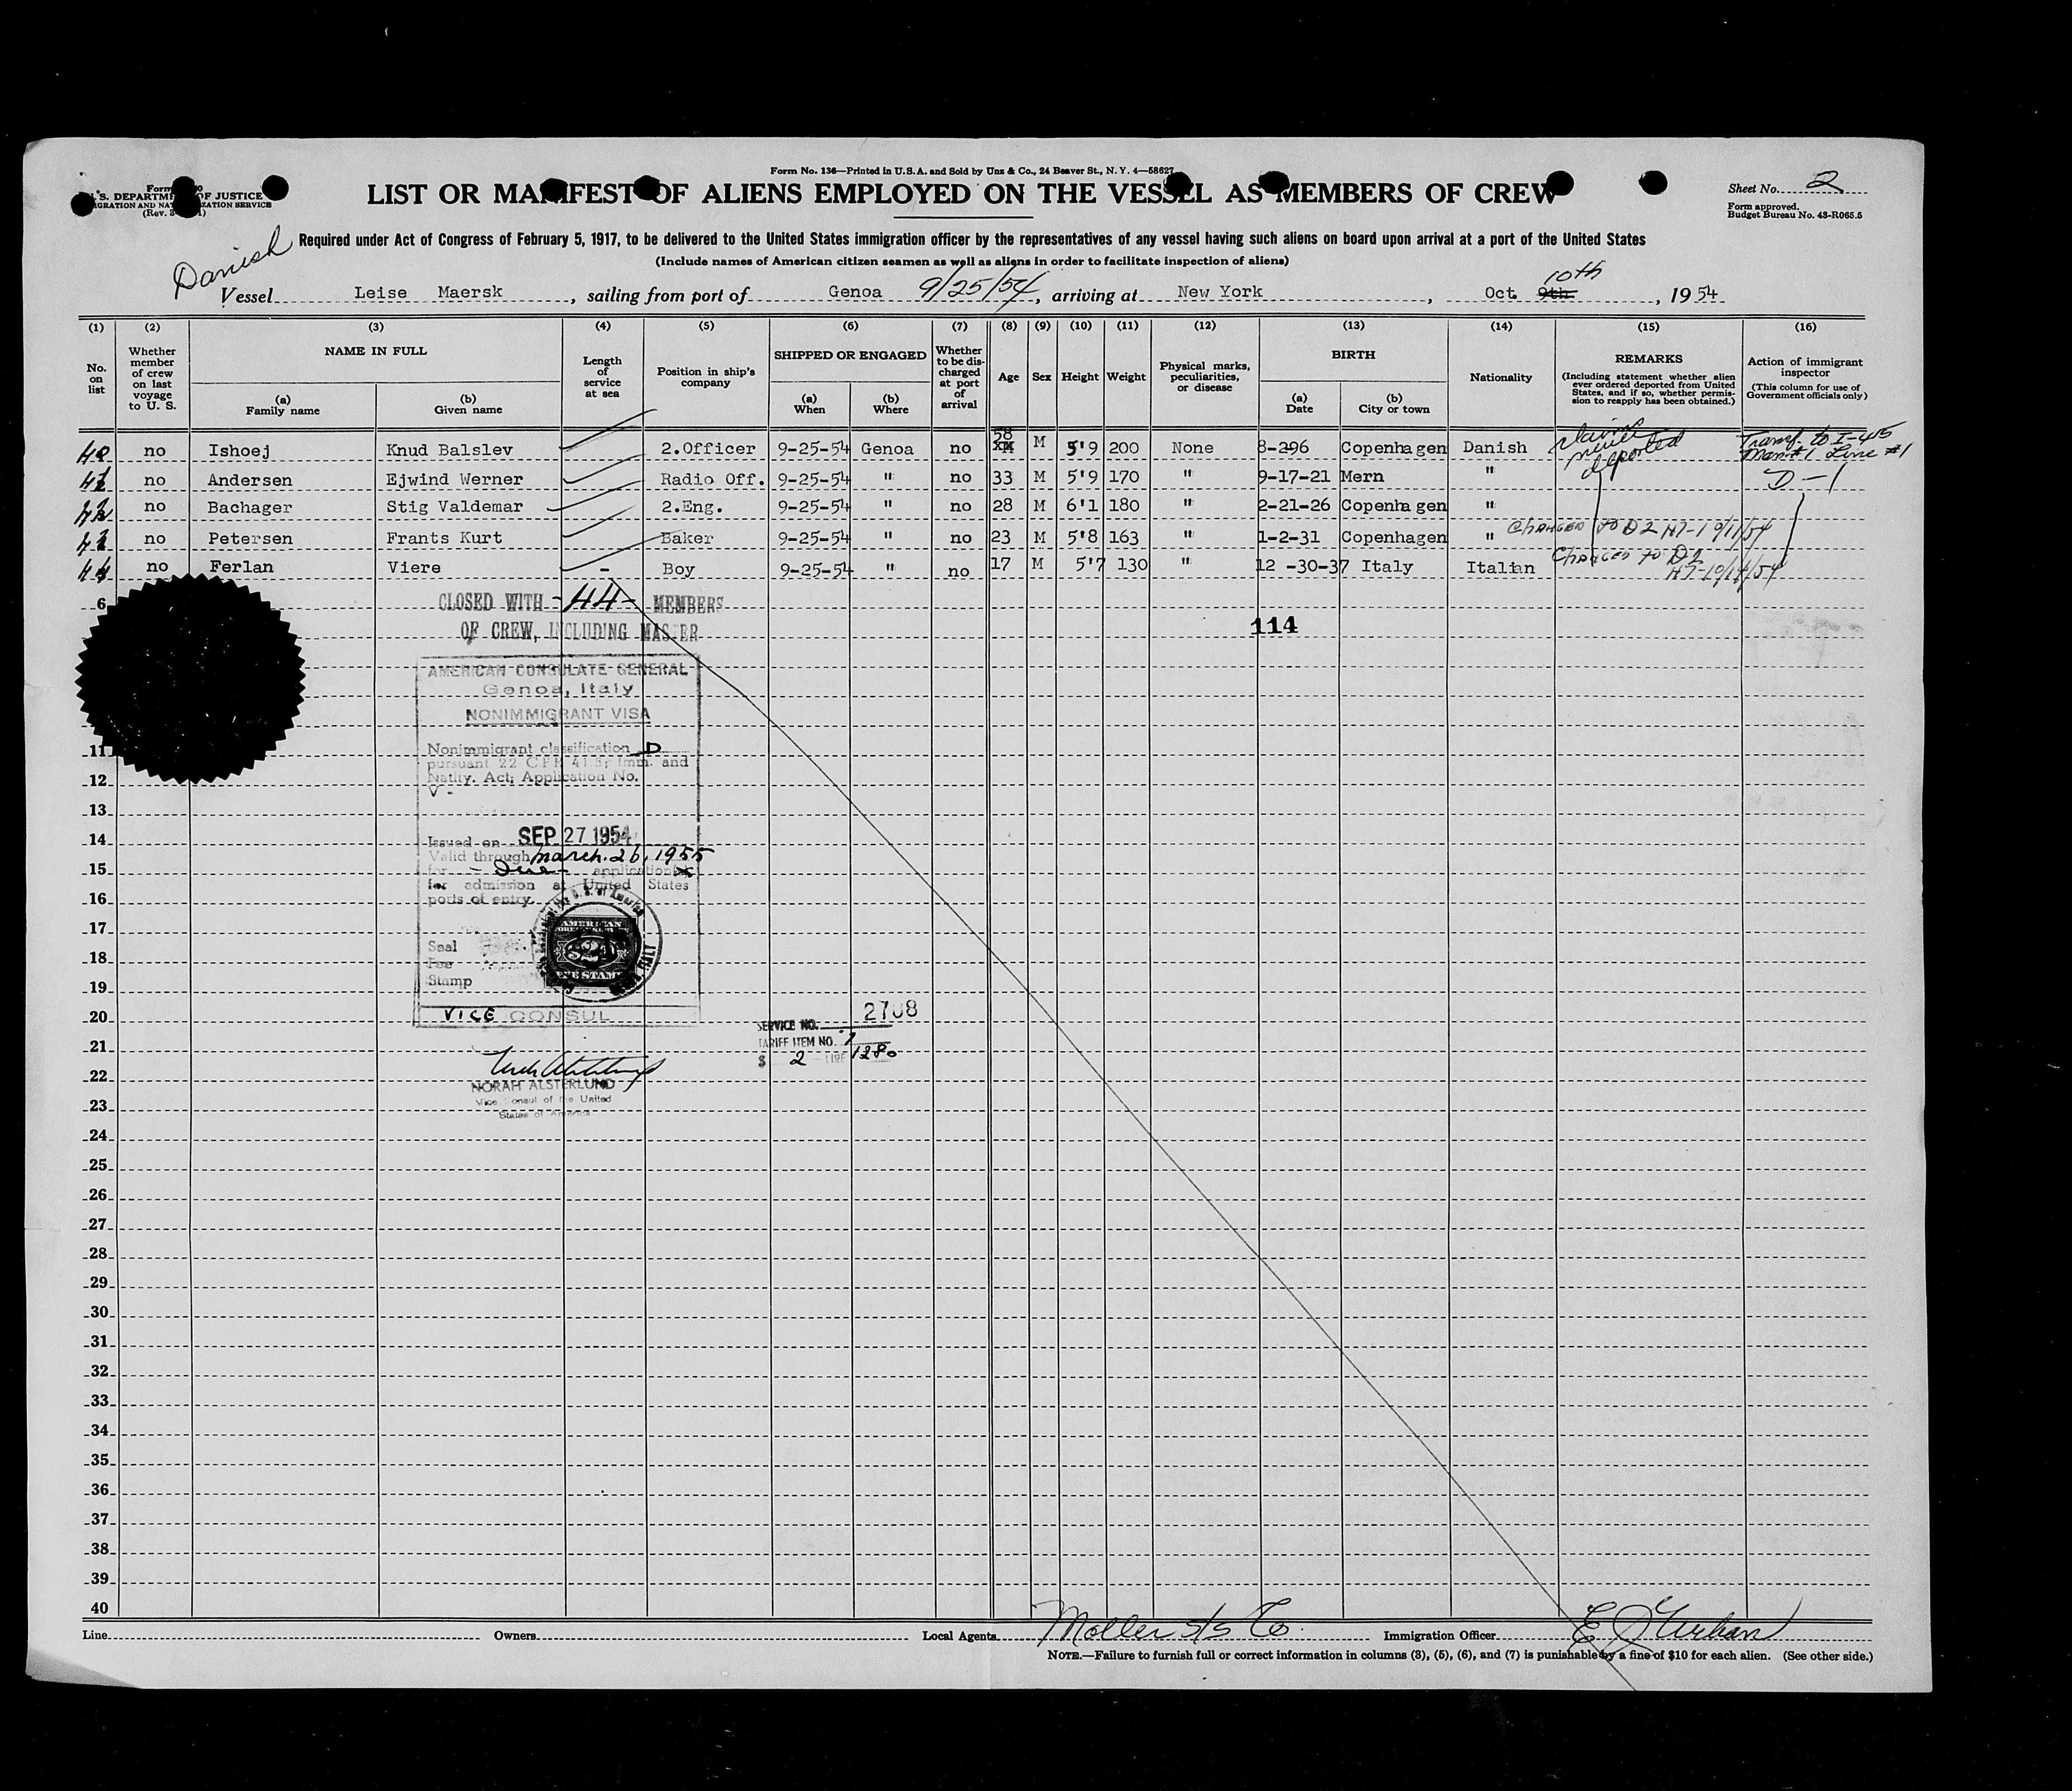 Form No. 136—Printed in U.S.A. and Sold by Unz & Co., 24 Beaver St., N. Y. 4—58627
S. DEPARTM OF JUSTICE
LIST OR MANIFEST OF ALIENS EMPLOYED ON THE VESSEL AS MEMBERS OF CREW
Sheet No. 2
Form approved.
Budget Bureau No. 43-R065.5
Danish
Required under Act of Congress of February 5, 1917, to be delivered to the United States immigration officer by the representatives of any vessel having such aliens on board upon arrival at a port of the United States
(Include names of American citizen seamen as well as aliens in order to facilitate inspection of aliens)
Vessel Leise Maersk, sailing from port of Genoa 9/25/54, arriving at New York, Oct. 9th 10th, 1954
(1) (2) (3) (4) (5) (6) (7) (8) (9) (10) (11) (12) (13) (14) (15) (16)
No. on list
Whether member of crew on last voyage to U. S.
NAME IN FULL
(a) Family name
(b) Given name
Length of service at sea
Position in ship's company
SHIPPED OR ENGAGED
(a) When
(b) Where
Whether to be discharged at port of arrival
Age
Sex
Height
Weight
Physical marks, peculiarities, or disease
BIRTH
(a) Date
(b) City or town
Nationality
REMARKS
(Including statement whether alien ever ordered deported from United States, and if so, whether permission to reapply has been obtained.)
Action of immigrant inspector
(This column for use of Government officials only)
40 no Ishoej Knud Balslev 2.Officer 9-25-54 Genoa no 58 M 5'9 200 None 8-296 Copenhagen Danish claims never deported Transf. to I-415 Man #1 Line #1
41 no Andersen Ejwind Werner Radio Off. 9-25-54 " no 33 M 5'9 170 " 9-17-21 Mern " D-1
42 no Bachager Stig Valdemar 2.Eng. 9-25-54 " no 28 M 6'1 180 " 2-21-26 Copenhagen "
43 no Petersen Frants Kurt Baker 9-25-54 " no 23 M 5'8 163 " 1-2-31 Copenhagen " Changed to D2
44 no Ferlan Viere - Boy 9-25-54 " no 17 M 5'7 130 " 12 -30-37 Italy Italian Changed to D2
6
CLOSED WITH -44- MEMBERS
OF CREW, INCLUDING MASTER
114
AMERICAN CONSULATE GENERAL
Genoa, Italy
NONIMMIGRANT VISA
11
Nonimmigrant classification D
pursuant 22 CFR 41.5; Imm. and
Natlty. Act; Application No.
V -
12
13
14
Issued on SEP 27 1954
Valid through march 26, 1955
15
for - One - application(s)
for admission at United States
ports of entry.
16
17
Seal
18
Fee
Stamp
19
20
VICE CONSUL
SERVICE NO. 2708
21
TARIFF ITEM NO. 7
$ 2 LIRE 1280
22
NORAH ALSTERLUND
Vice Consul of the United
States of America
23
24
25
26
27
28
29
30
31
32
33
34
35
36
37
38
39
40
Line Owners Local Agents Moller S/S Co. Immigration Officer
NOTE.—Failure to furnish full or correct information in columns (3), (5), (6), and (7) is punishable by a fine of $10 for each alien. (See other side.)